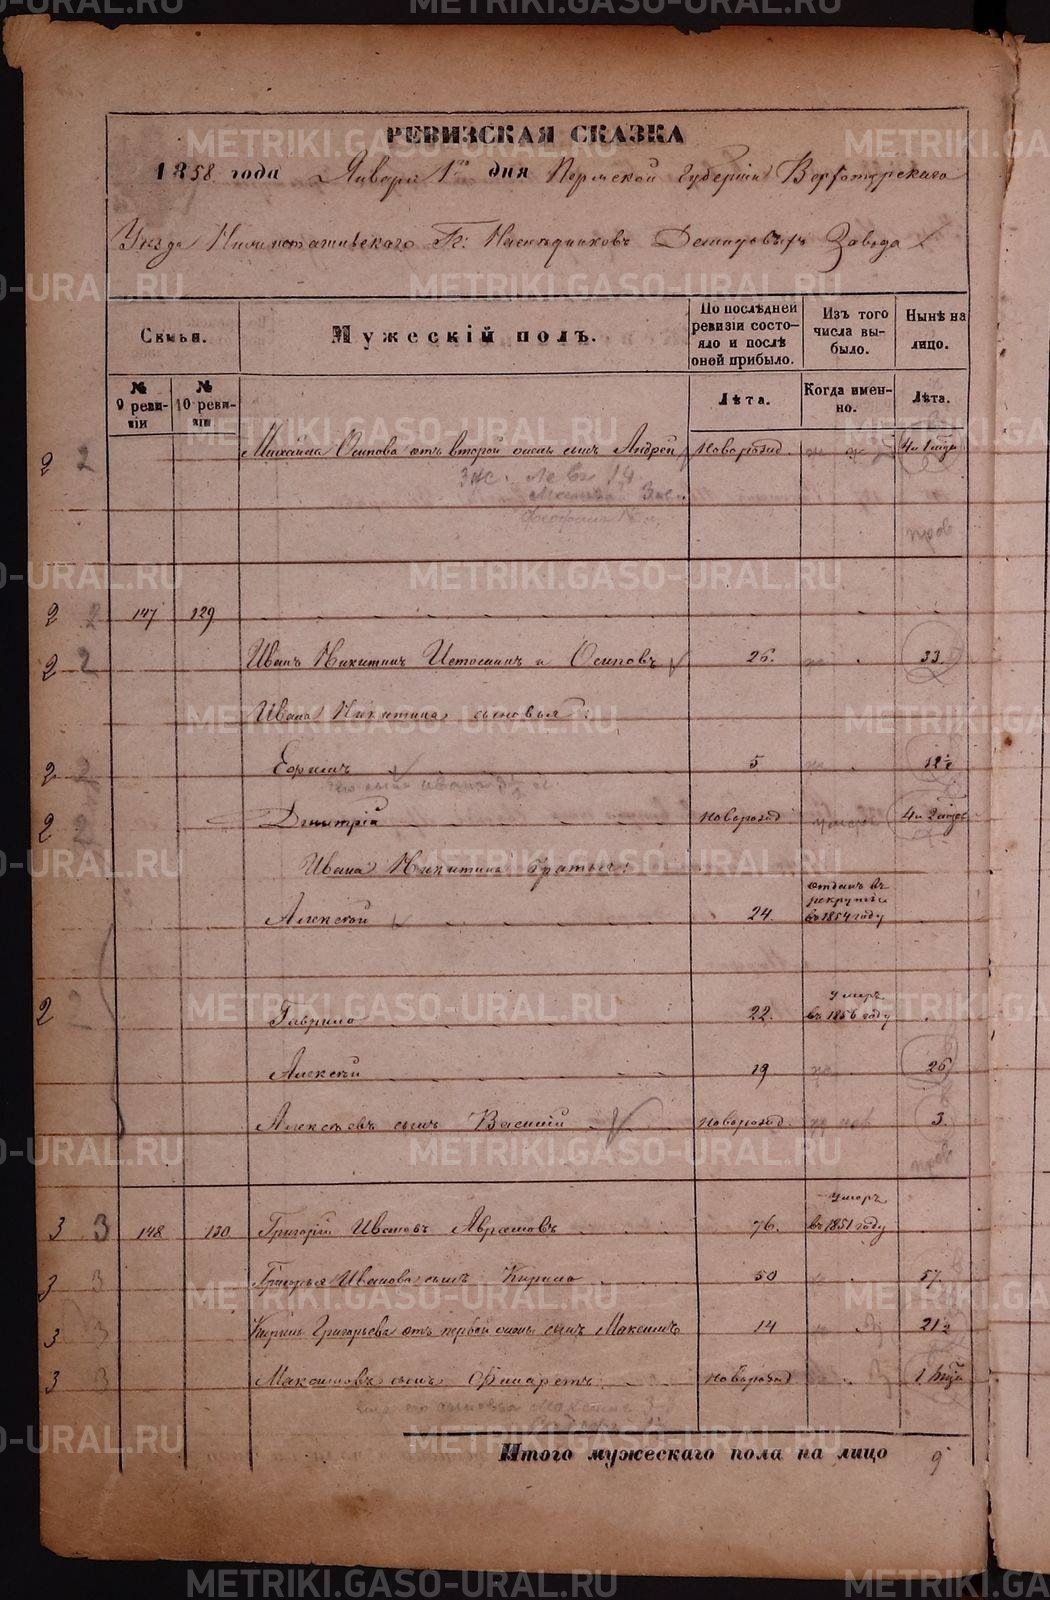 РЕВИЗСКАЯ СКАЗКА
1858 года Января 1го дня Пермской Губернии Верхотурскаго
Уезда Нижнетагильскаго Гг: Наследниковъ Демидовыхъ Завода
Семьи.
Мужескій полъ.
По послѣдней ревизіи состояло и послѣ оней прибыло.
Изъ того числа выбыло.
Нынѣ на лицо.
№ 9 ревизіи
№ 10 ревизіи
Лѣта.
Когда именно.
Лѣта.
2 2 Михайла Осипова отъ второй жены сынъ Андрей новорожд. 4 и 1 мѣс
2 2 147 129
2 2 Иванъ Никитинъ Осиповъ 26. 33.
Ивана Никитина сыновья:
2 2 Ефимъ 5 12½
2 2 Дмитрій новорожд 4 и 2 мѣс
Ивана Никитина братья:
Алексѣй 24. отданъ въ рекруты въ 1854 году
2 2 Гаврило 22. умеръ въ 1856 году
Алексѣй 19 26
Алексѣевъ сынъ Василій новорожд. 3.
пров
3 3 148 130 Григорій Ивановъ Аврамовъ 76. умеръ въ 1851 году
3 3 Григорья Иванова сынъ Кирило 50 57.
3 3 Кирила Григорьева отъ первой жены сынъ Максимъ 14 21½
3 3 Максимовъ сынъ Филаретъ новорожд
Итого мужескаго пола на лицо 9
METRIKI.GASO-URAL.RU